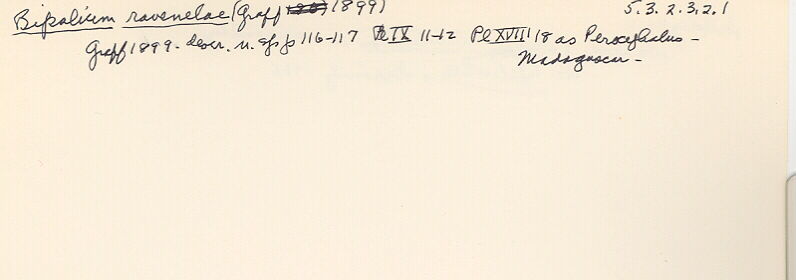 Bipalium ravenelae (Graff 1899) 5.3.2.3.2.1
Graff 1899. descr. n. sp. p 116-117 Pl IX 11-12 Pl XVII 18 as Perocephalus -
Madagascar -